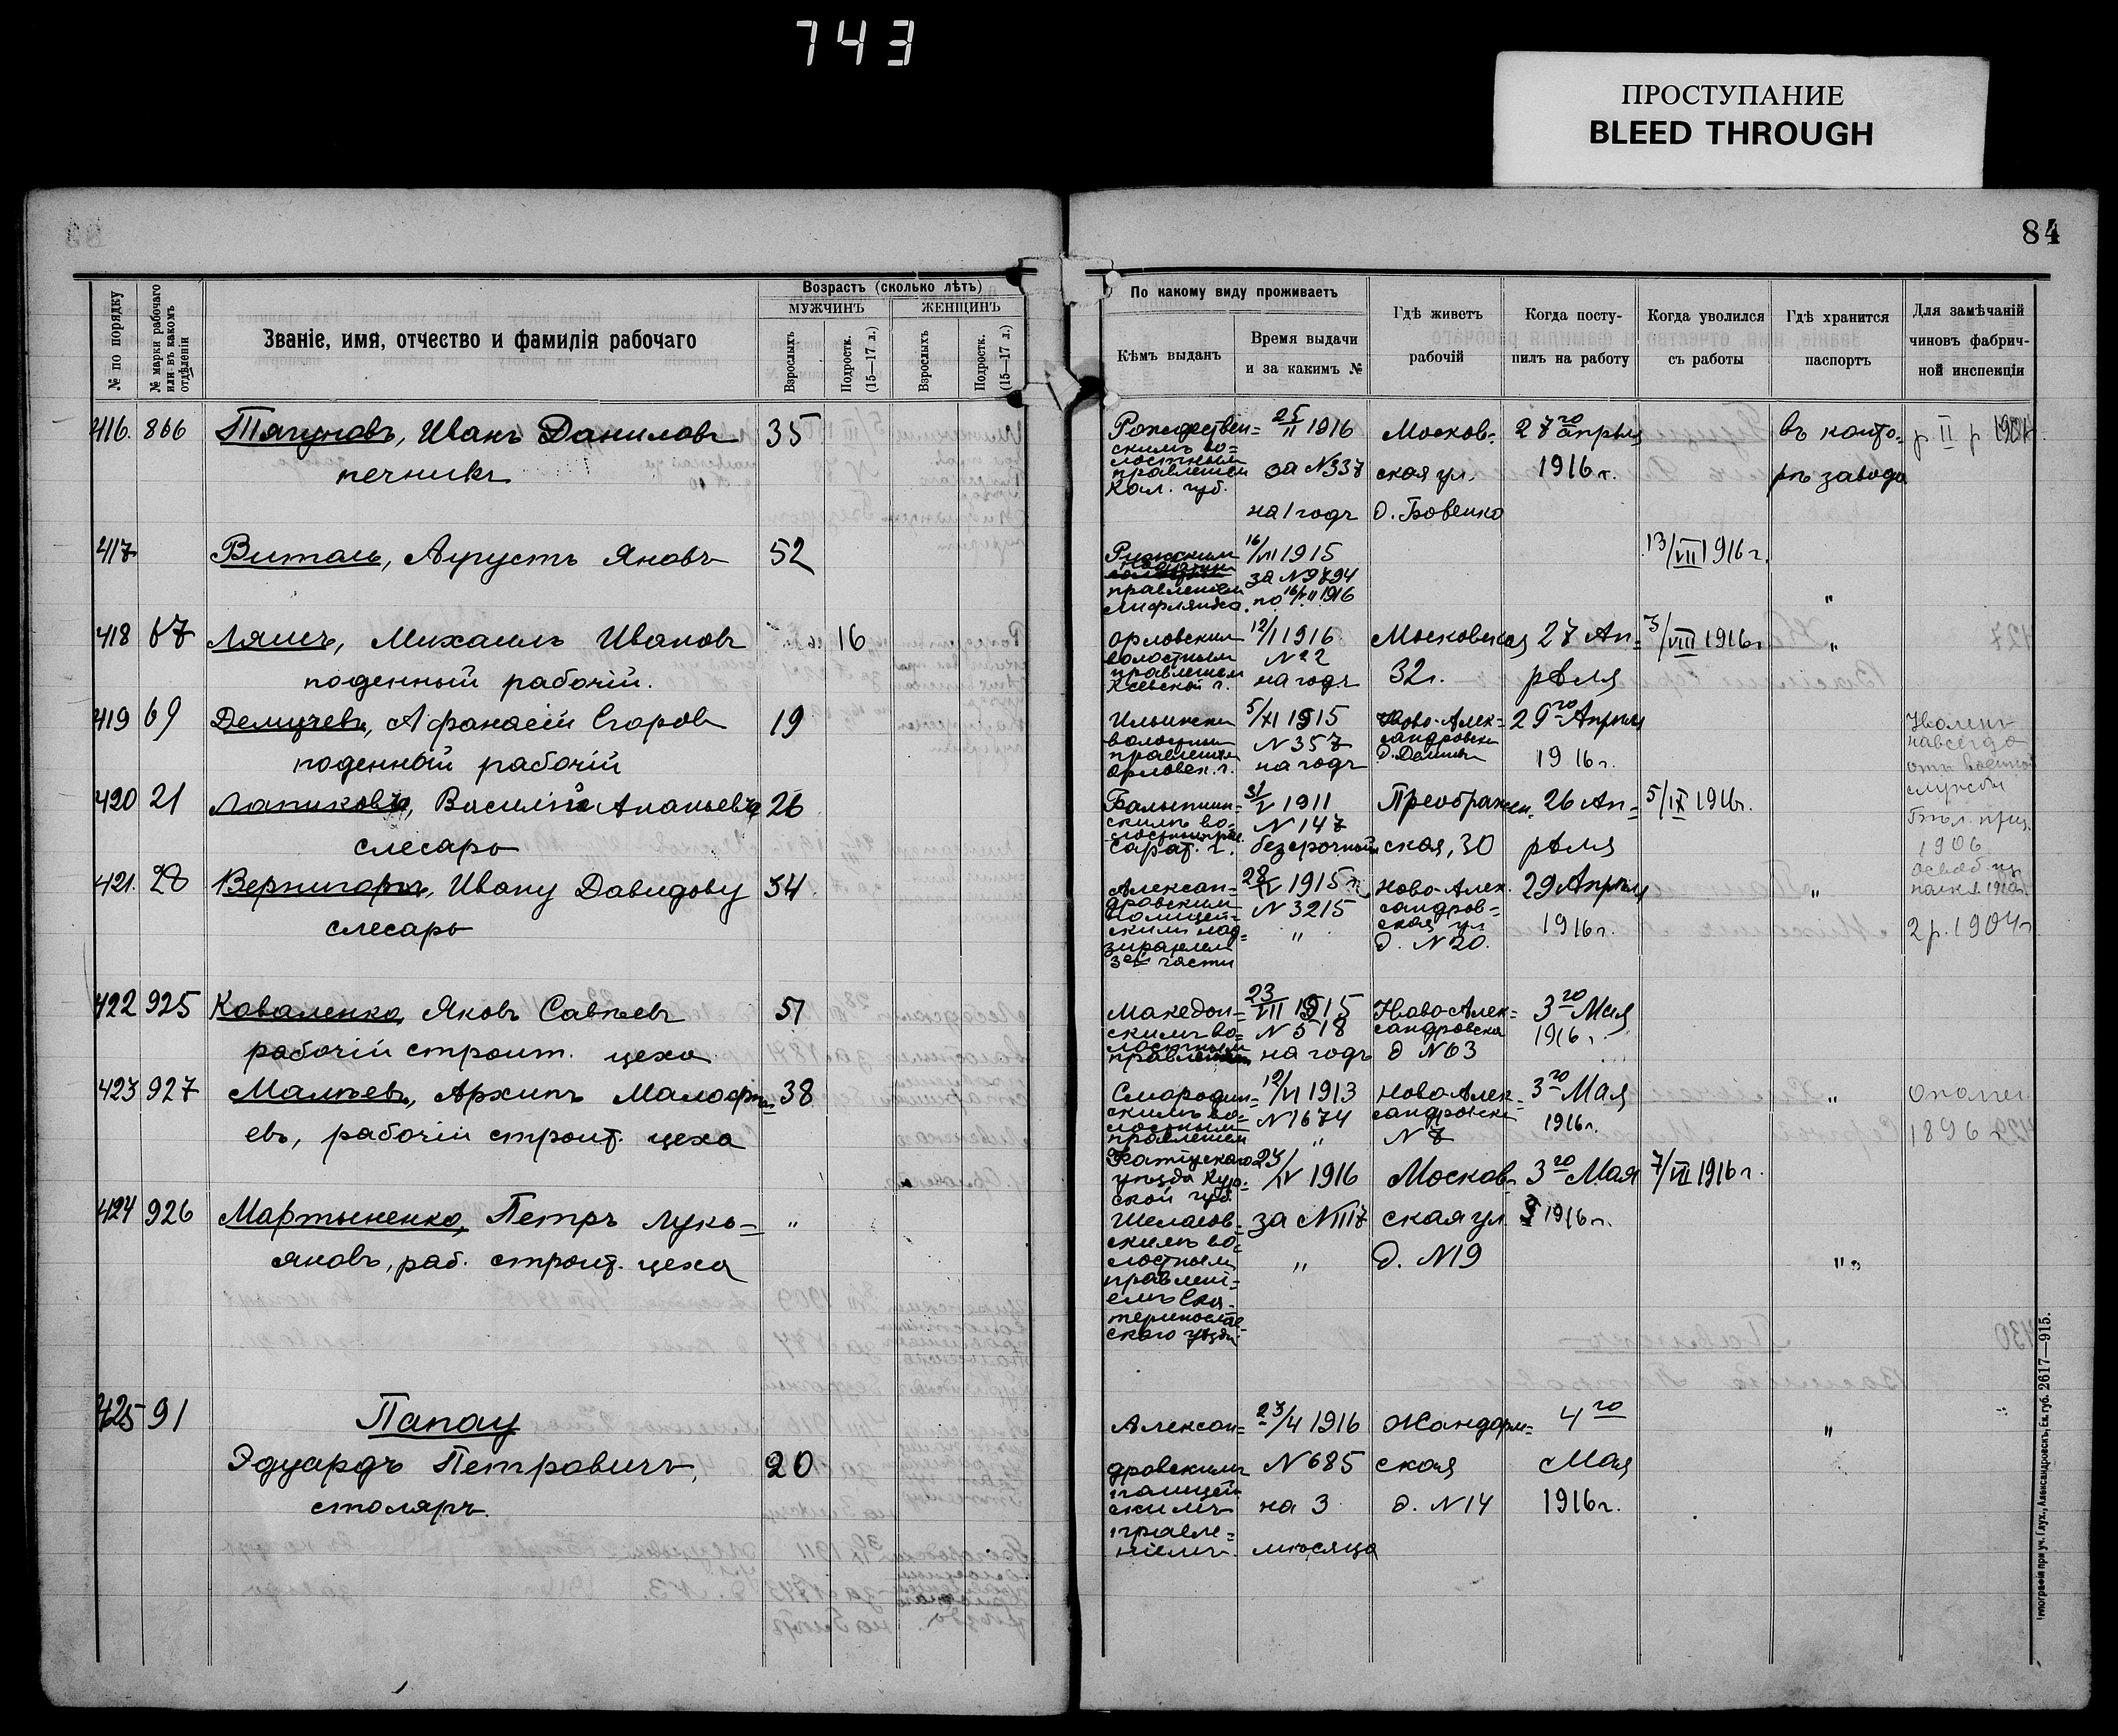 743
ПРОСТУПАНИЕ
BLEED THROUGH
84
№ по порядку
№ марки рабочаго или въ какомъ отдѣленіи
Званіе, имя, отчество и фамилія рабочаго
Возрастъ (сколько лѣтъ)
МУЖЧИНЪ
ЖЕНЩИНЪ
Взрослыхъ
Подростк. (15—17 л.)
Взрослыхъ
Подростк. (15—17 л.)
По какому виду проживаетъ
Кѣмъ выданъ
Время выдачи
и за какимъ №
Гдѣ живетъ
рабочій
Когда посту-
пилъ на работу
Когда уволился
съ работы
Гдѣ хранится
паспортъ
Для замѣчаній
чиновъ фабрич-
ной инспекціи
416. 866 Тягуновъ, Иванъ Даниловъ 35
печникъ
Рождествен=
скимъ во=
лостнымъ
правленіем
Кал. губ.
25/II 1916
за №337
на 1 годъ
Москов-
ская ул.
д. Бовенко
27го апрѣля
1916 г.
въ конто-
рѣ завода
417 Виталь, Августъ Яновъ 52
Рижскимъ
правленіем
Лифляндск.
16/VII 1915
за №9794
13/VII 1916 г.
"
418 67 Ляшъ, Михаилъ Ивановъ 16
поденный рабочій.
Орловскимъ
волостнымъ
правленіемъ
12/I 1916
№22
на годъ
Московская
32 г.
27 Ап=
рѣля
3/VIII 1916 г
"
419 69 Демичевъ, Афанасій Егоров 19
поденный рабочій
Ильински
волостным
правленіем
Орловск. г.
5/XI 1915
№357
на годъ
Ново-Алек=
сандровск
29го Апрѣля
1916 г.
навсегда
отъ военной
службы
420 21 Лапиковъ, Василій Ананьевъ 26
слесарь
скимъ во-
Сарат. г.
31/V 1911
№147
безсрочный
Преображен-
ская, 30
26 Ап=
рѣля
5/IX 1916г.
1906
421. 28 Вернигоръ, Ивану Давидову 34
слесарь
Алексан=
дровским
полицей=
скимъ над=
зирателем
3ей части
28/IV 1915 г
№3215
"
Ново-Алек.
сандров=
ская ул
д. №20.
29 Апрѣля
1916 г.
"
2 р. 1904 г
422 925 Коваленко, Яковъ Савѣевъ 51
рабочій строит. цеха
Македон=
скимъ во=
лостным
правленіем
23/VII 1915
№518
на годъ
Ново-Алек=
сандровска
д №63
3го Мая
1916 г.
423 927 Малѣевъ, Архипъ Малофѣ= 38
евъ, рабочій строит. цеха
Смородин=
скимъ во=
лостным
правленіем
12/VI 1913
№1674
"
Ново-Алек-
сандровск
№7
3го Мая
1916 г.
"
Ополч.
1896 г
424 926 Мартыненко, Петръ Лукь= "
яновъ, раб. строит. цеха
уѣзда Кур-
ской губ.
скимъ во=
лостным
правлен=
23/IV 1916
за №1117
"
Москов-
ская ул.
д. №19
3го Мая
1916 г.
7/VII 1916 г.
"
425 91 Папау
Эдуардъ Петровичъ, 20
столяръ.
Алексан=
дровскимъ
полицей
скимъ
правле=
ніемъ.
23/4 1916
№685
на 3
мѣсяца
Жандарм=
ская
д. №14
4го
Мая
1916 г.
"
Типографія при уч. Глух., Александровскъ, Ек. губ. 2617—915.